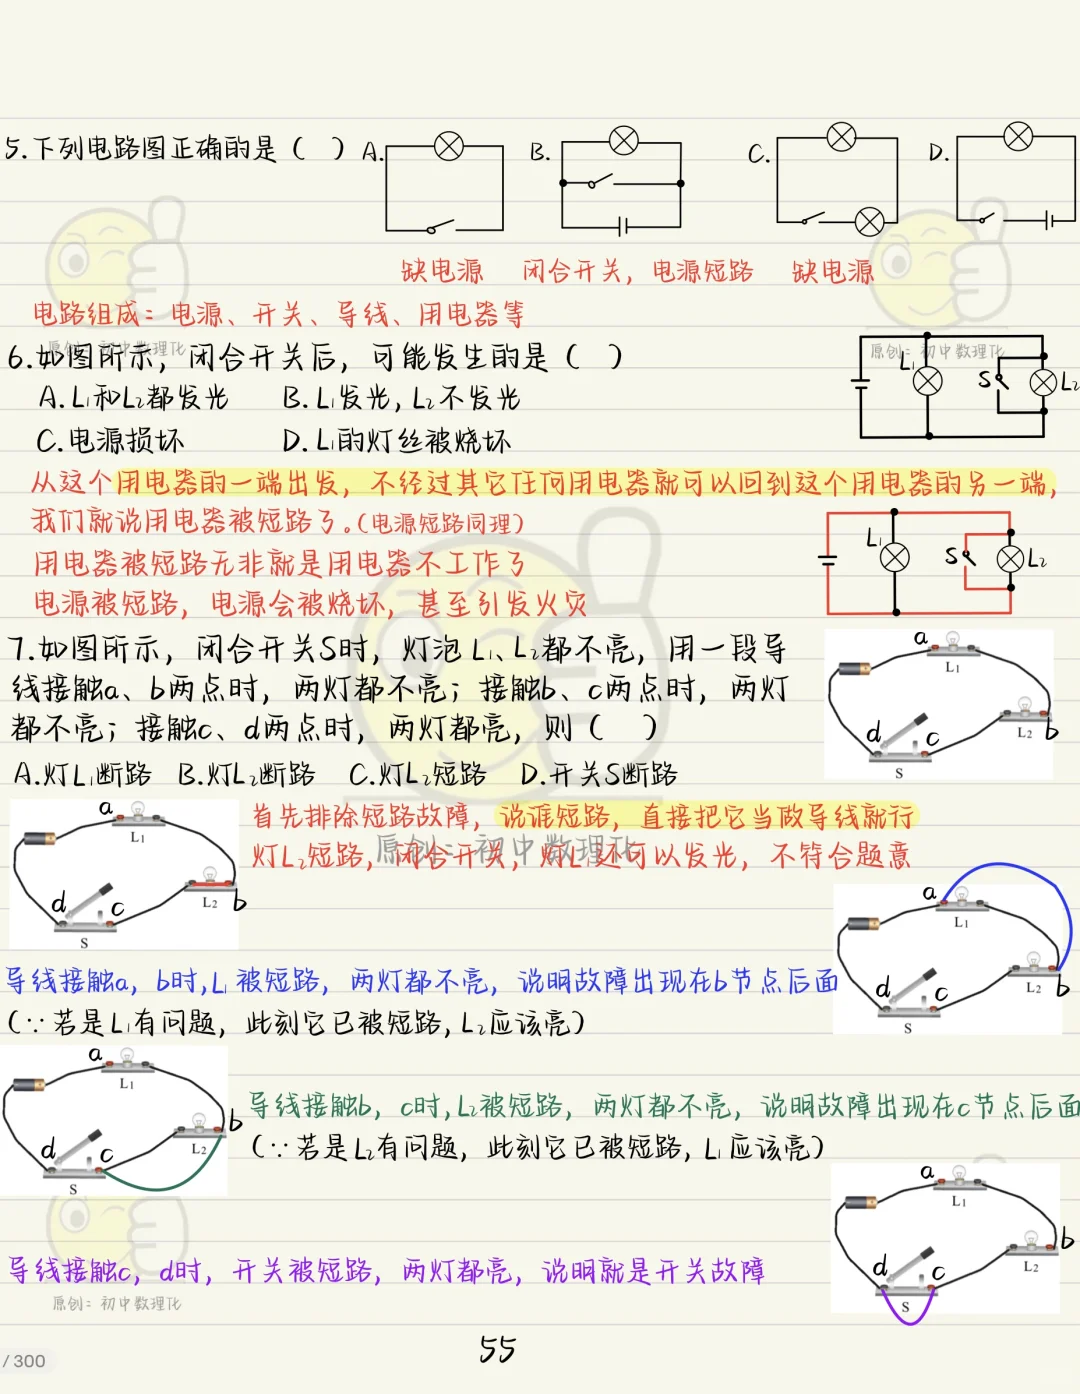 5.下列电路图正确的是（ ）A. B. C. D.
缺电源 闭合开关，电源短路 缺电源
电路组成：电源、开关、导线、用电器等
原创：初中数理化
6.如图所示，闭合开关后，可能发生的是（ ）
原创：初中数理化
L₁ S L₂
A.L₁和L₂都发光 B.L₁发光，L₂不发光
C.电源损坏 D.L₁的灯丝被烧坏
从这个用电器的一端出发，不经过其它任何用电器就可以回到这个用电器的另一端，
我们就说用电器被短路了。（电源短路同理）
L₁ S L₂
用电器被短路无非就是用电器不工作了
电源被短路，电源会被烧坏，甚至引发火灾
7.如图所示，闭合开关S时，灯泡L₁、L₂都不亮，用一段导
线接触a、b两点时，两灯都不亮；接触b、c两点时，两灯
都不亮；接触c、d两点时，两灯都亮，则（ ）
a L₁ d c L₂ b S
A.灯L₁断路 B.灯L₂断路 C.灯L₂短路 D.开关S断路
a L₁ d c L₂ b S
首先排除短路故障，说谁短路，直接把它当做导线就行
原创：初中数理化
灯L₂短路，闭合开关，灯L₁还可以发光，不符合题意
a L₁ d c L₂ b S
导线接触a，b时，L₁被短路，两灯都不亮，说明故障出现在b节点后面
（∵若是L₁有问题，此刻它已被短路，L₂应该亮）
a L₁ d c L₂ b S
导线接触b，c时，L₂被短路，两灯都不亮，说明故障出现在c节点后面
（∵若是L₂有问题，此刻它已被短路，L₁应该亮）
a L₁ d c L₂ b S
导线接触c，d时，开关被短路，两灯都亮，说明就是开关故障
原创：初中数理化
55
/ 300